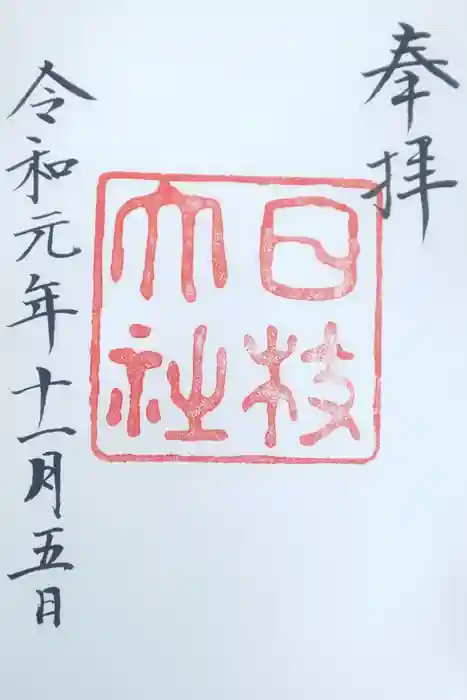 奉拝
日枝
大社
令和元年十一月五日